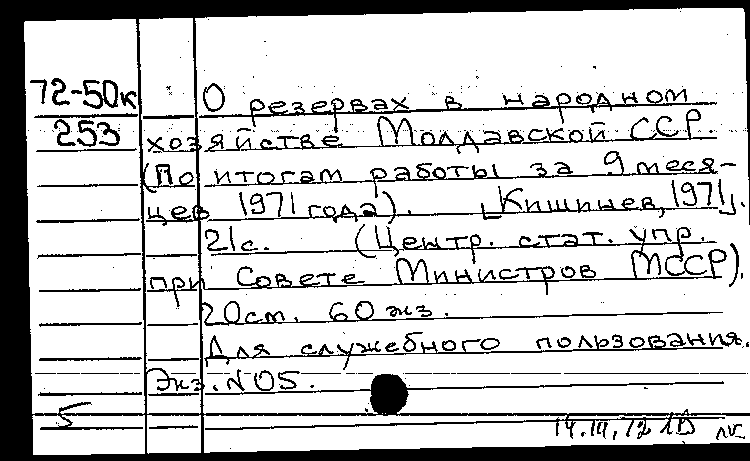 72-50к О резервах в народном
253 хозяйстве Молдавской ССР.
(По итогам работы за 9 меся-
цев 1971 года). [Кишинев, 1971].
21с. (Центр. стат. упр.
при Совете Министров МССР).
20см. 60 экз.
Для служебного пользования.
Экз. №05.
5